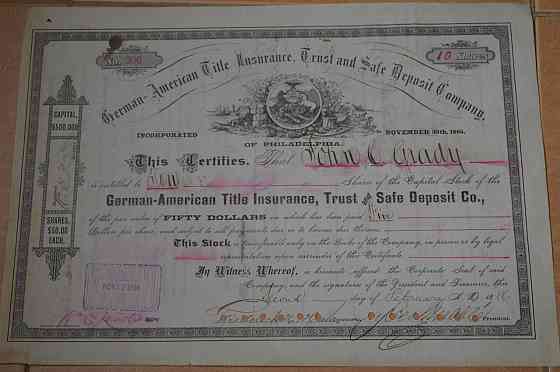 No. 300
10 Shares
German-American Title Insurance, Trust and Safe Deposit Company,
INCORPORATED
NOVEMBER 30th,
OF PHILADELPHIA.
CAPITAL,
$500,000
This Certifies, That John C Grady
is entitled to Ten Share of the Capital Stock of the
German-American Title Insurance, Trust and Safe Deposit Co.,
of the par value of FIFTY DOLLARS on which has been paid Five
Dollars per share, and subject to all payments due or to become due thereon.
This Stock is transferable only on the Books of the Company, in person or by legal
representative upon surrender of this Certificate.
SHARES,
$50.00
EACH.
In Witness Whereof, is hereunto affixed the Corporate Seal of said
Company, and the signatures of the President and Treasurer, this
Second day of February A.D.
President.